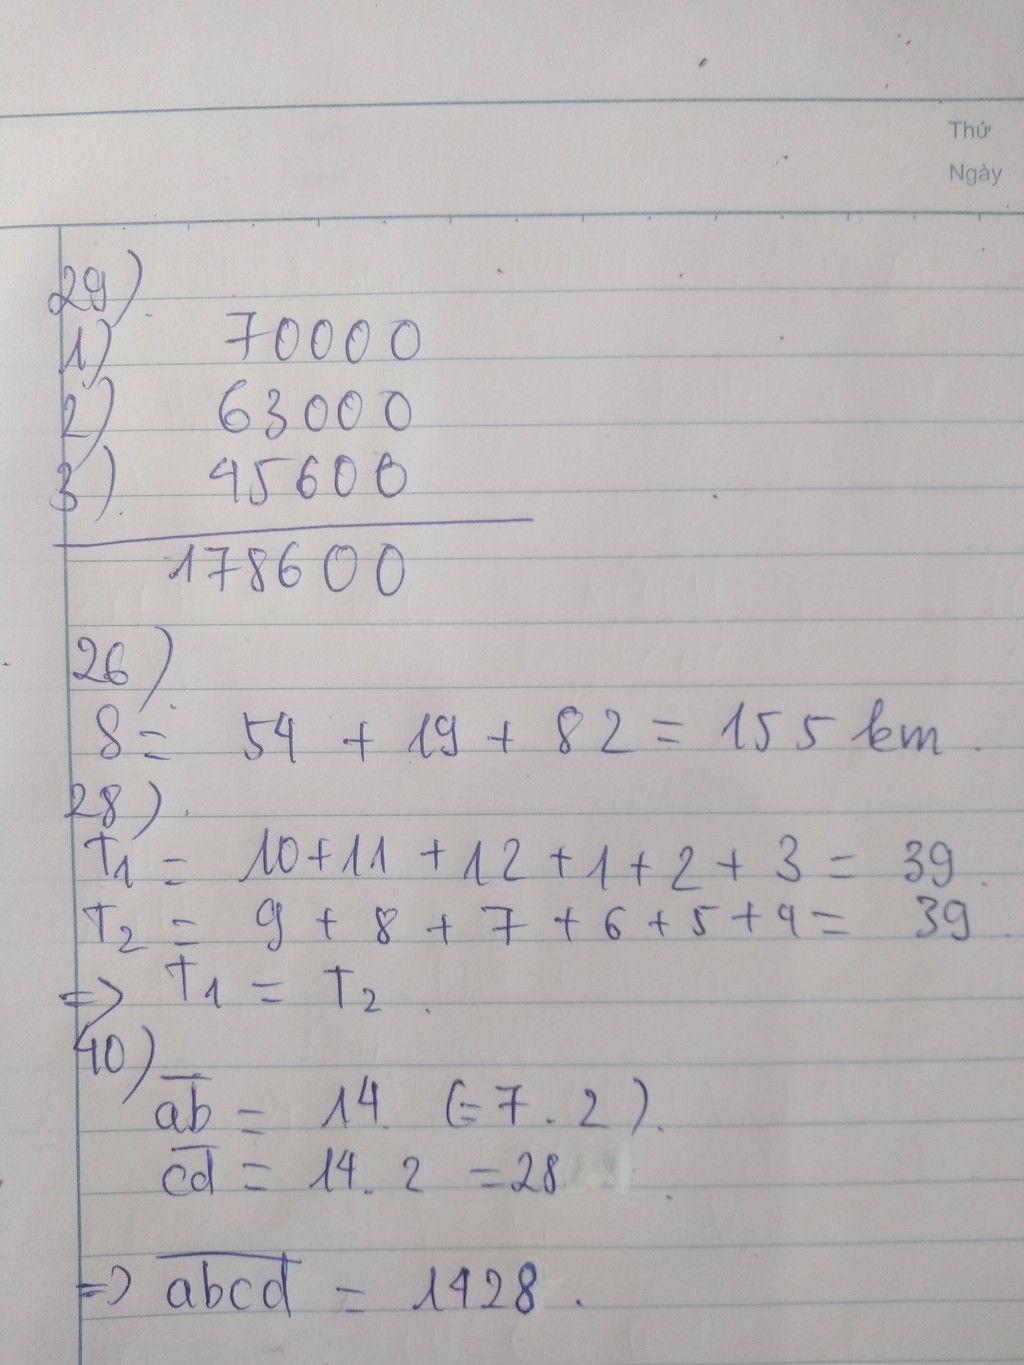 Thứ
Ngày
29)
1) 70000
2) 63000
3) 45600
178600
26)
S = 54 + 19 + 82 = 155 km.
28).
T1 = 10+11 + 12 + 1 + 2 + 3 = 39.
T2 = 9 + 8 + 7 + 6 + 5 + 4 = 39.
=> T1 = T2.
40)
a̅b̅ = 14 (=7.2).
c̅d̅ = 14.2 =28.
=> a̅b̅c̅d̅ = 1428.